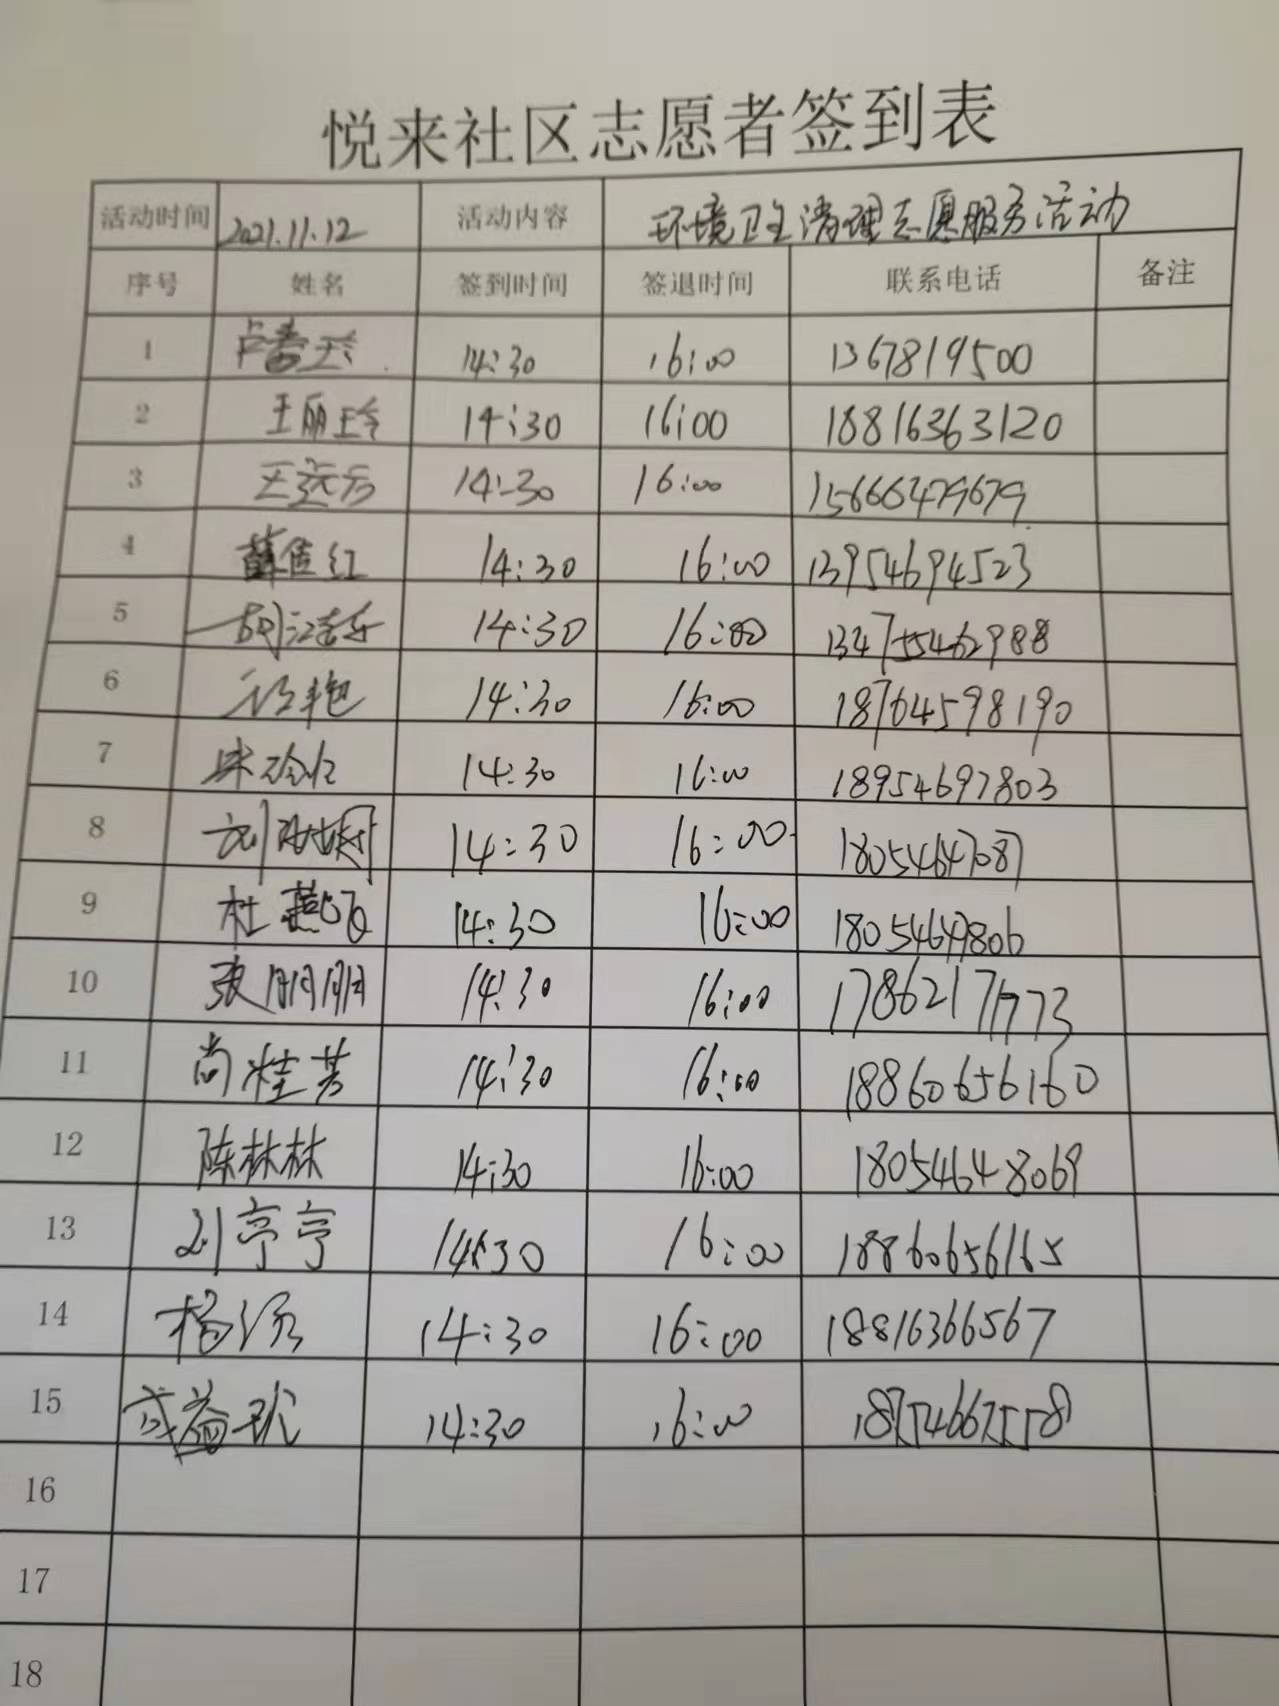 悦来社区志愿者签到表
活动时间 2021.11.12 活动内容 环境卫生清理志愿服务活动
序号 姓名 签到时间 签退时间 联系电话 备注
1 14:30 16:00 1367819500
2 王丽玲 14:30 16:00 18816363120
3 14:30 16:00 15666479679
4 薛佳红 14:30 16:00 13954694523
5 14:30 16:00
6 14:30 16:00 18764598190
7 14:30 16:00 18954697803
8 14:30 16:00 18054647087
9 杜燕飞 14:30 16:00 18054647806
10 张明明 14:30 16:00 17862171773
11 尚桂芳 14:30 16:00 18860656160
12 陈林林 14:30 16:00 18054648069
13 刘亭亭 14:30 16:00 18860656165
14 14:30 16:00 18816366567
15 14:30 16:00
16
17
18